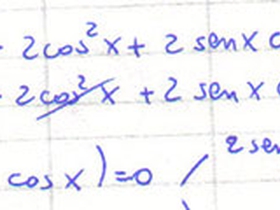 - 2cos²x + 2 senx c
- 2cos²x + 2 sen x c
cos x ) = 0 / 2 sen